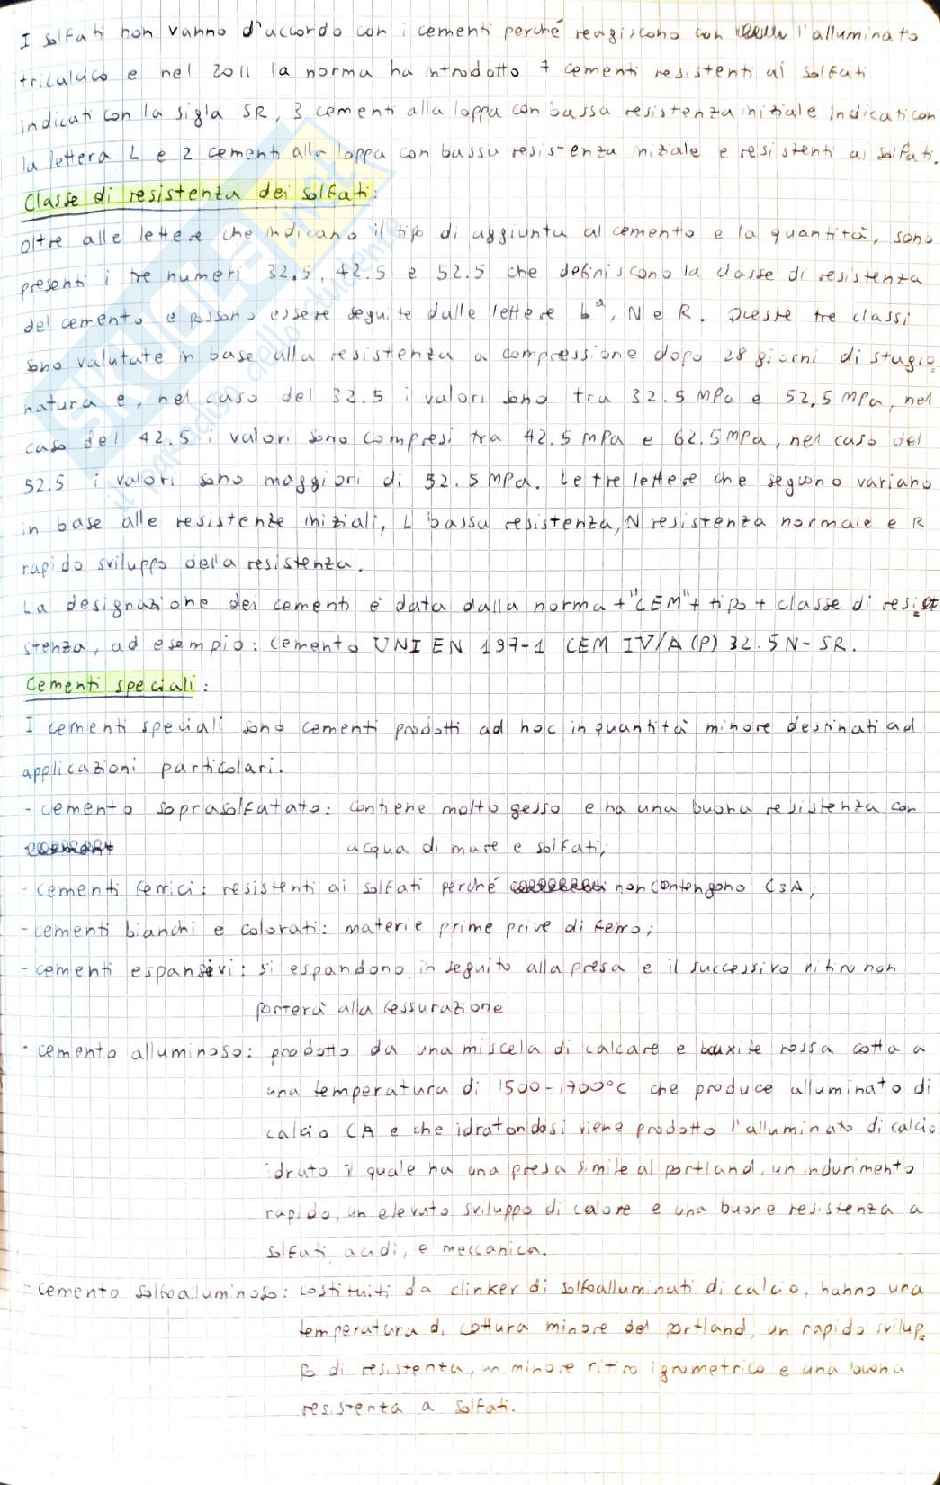 I solfati non vanno d'accordo con i cementi perché reagiscono con l'alluminato
tricalcico e nel 2011 la norma ha introdotto 7 cementi resistenti ai solfati
indicati con la sigla SR, 3 cementi alla loppa con bassa resistenza iniziale indicati con
la lettera L e 2 cementi alla loppa con bassa resistenza iniziale e resistenti ai solfati.
Classe di resistenza dei solfati:
Oltre alle lettere che indicano il tipo di aggiunta al cemento e la quantità, sono
presenti i tre numeri 32.5, 42.5 e 52.5 che definiscono la classe di resistenza
del cemento e possono essere seguite dalle lettere N e R. Queste tre classi
sono valutate in base alla resistenza a compressione dopo 28 giorni di stagio
natura e, nel caso del 32.5 i valori sono tra 32.5 MPa e 52,5 MPa, nel
caso del 42.5 i valori sono compresi tra 42.5 MPa e 62.5 MPa, nel caso del
52.5 i valori sono maggiori di 52.5 MPa. Le tre lettere che seguono variano
in base alle resistenze iniziali, L bassa resistenza, N resistenza normale e R
rapido sviluppo della resistenza.
La designazione dei cementi è data dalla norma + "CEM" + tipo + classe di resi
stenza, ad esempio: cemento UNI EN 197-1 CEM IV/A (P) 32.5 N - SR.
Cementi speciali:
I cementi speciali sono cementi prodotti ad hoc in quantità minore destinati ad
applicazioni particolari.
- cemento soprasolfatato: contiene molto gesso e ha una buona resistenza con
acqua di mare e solfati;
- cementi ferrici: resistenti ai solfati perché non contengono C3A;
- cementi bianchi e colorati: materie prime prive di ferro;
- cementi espansivi: si espandono in seguito alla presa e il successivo ritiro non
porterà alla fessurazione
- cemento alluminoso: prodotto da una miscela di calcare e bauxite rossa cotta a
una temperatura di 1500-1700°C che produce alluminato di
calcio CA e che idratandosi viene prodotto l'alluminato di calcio
idrato il quale ha una presa simile al portland, un indurimento
rapido, un elevato sviluppo di calore e una buona resistenza a
solfati, acidi, e meccanica.
- cemento solfoaluminoso: costituiti da clinker di solfoalluminati di calcio, hanno una
temperatura di cottura minore del portland, un rapido svilup
po di resistenza, un minore ritiro igrometrico e una buona
resistenza a solfati.
SKUOLA.net